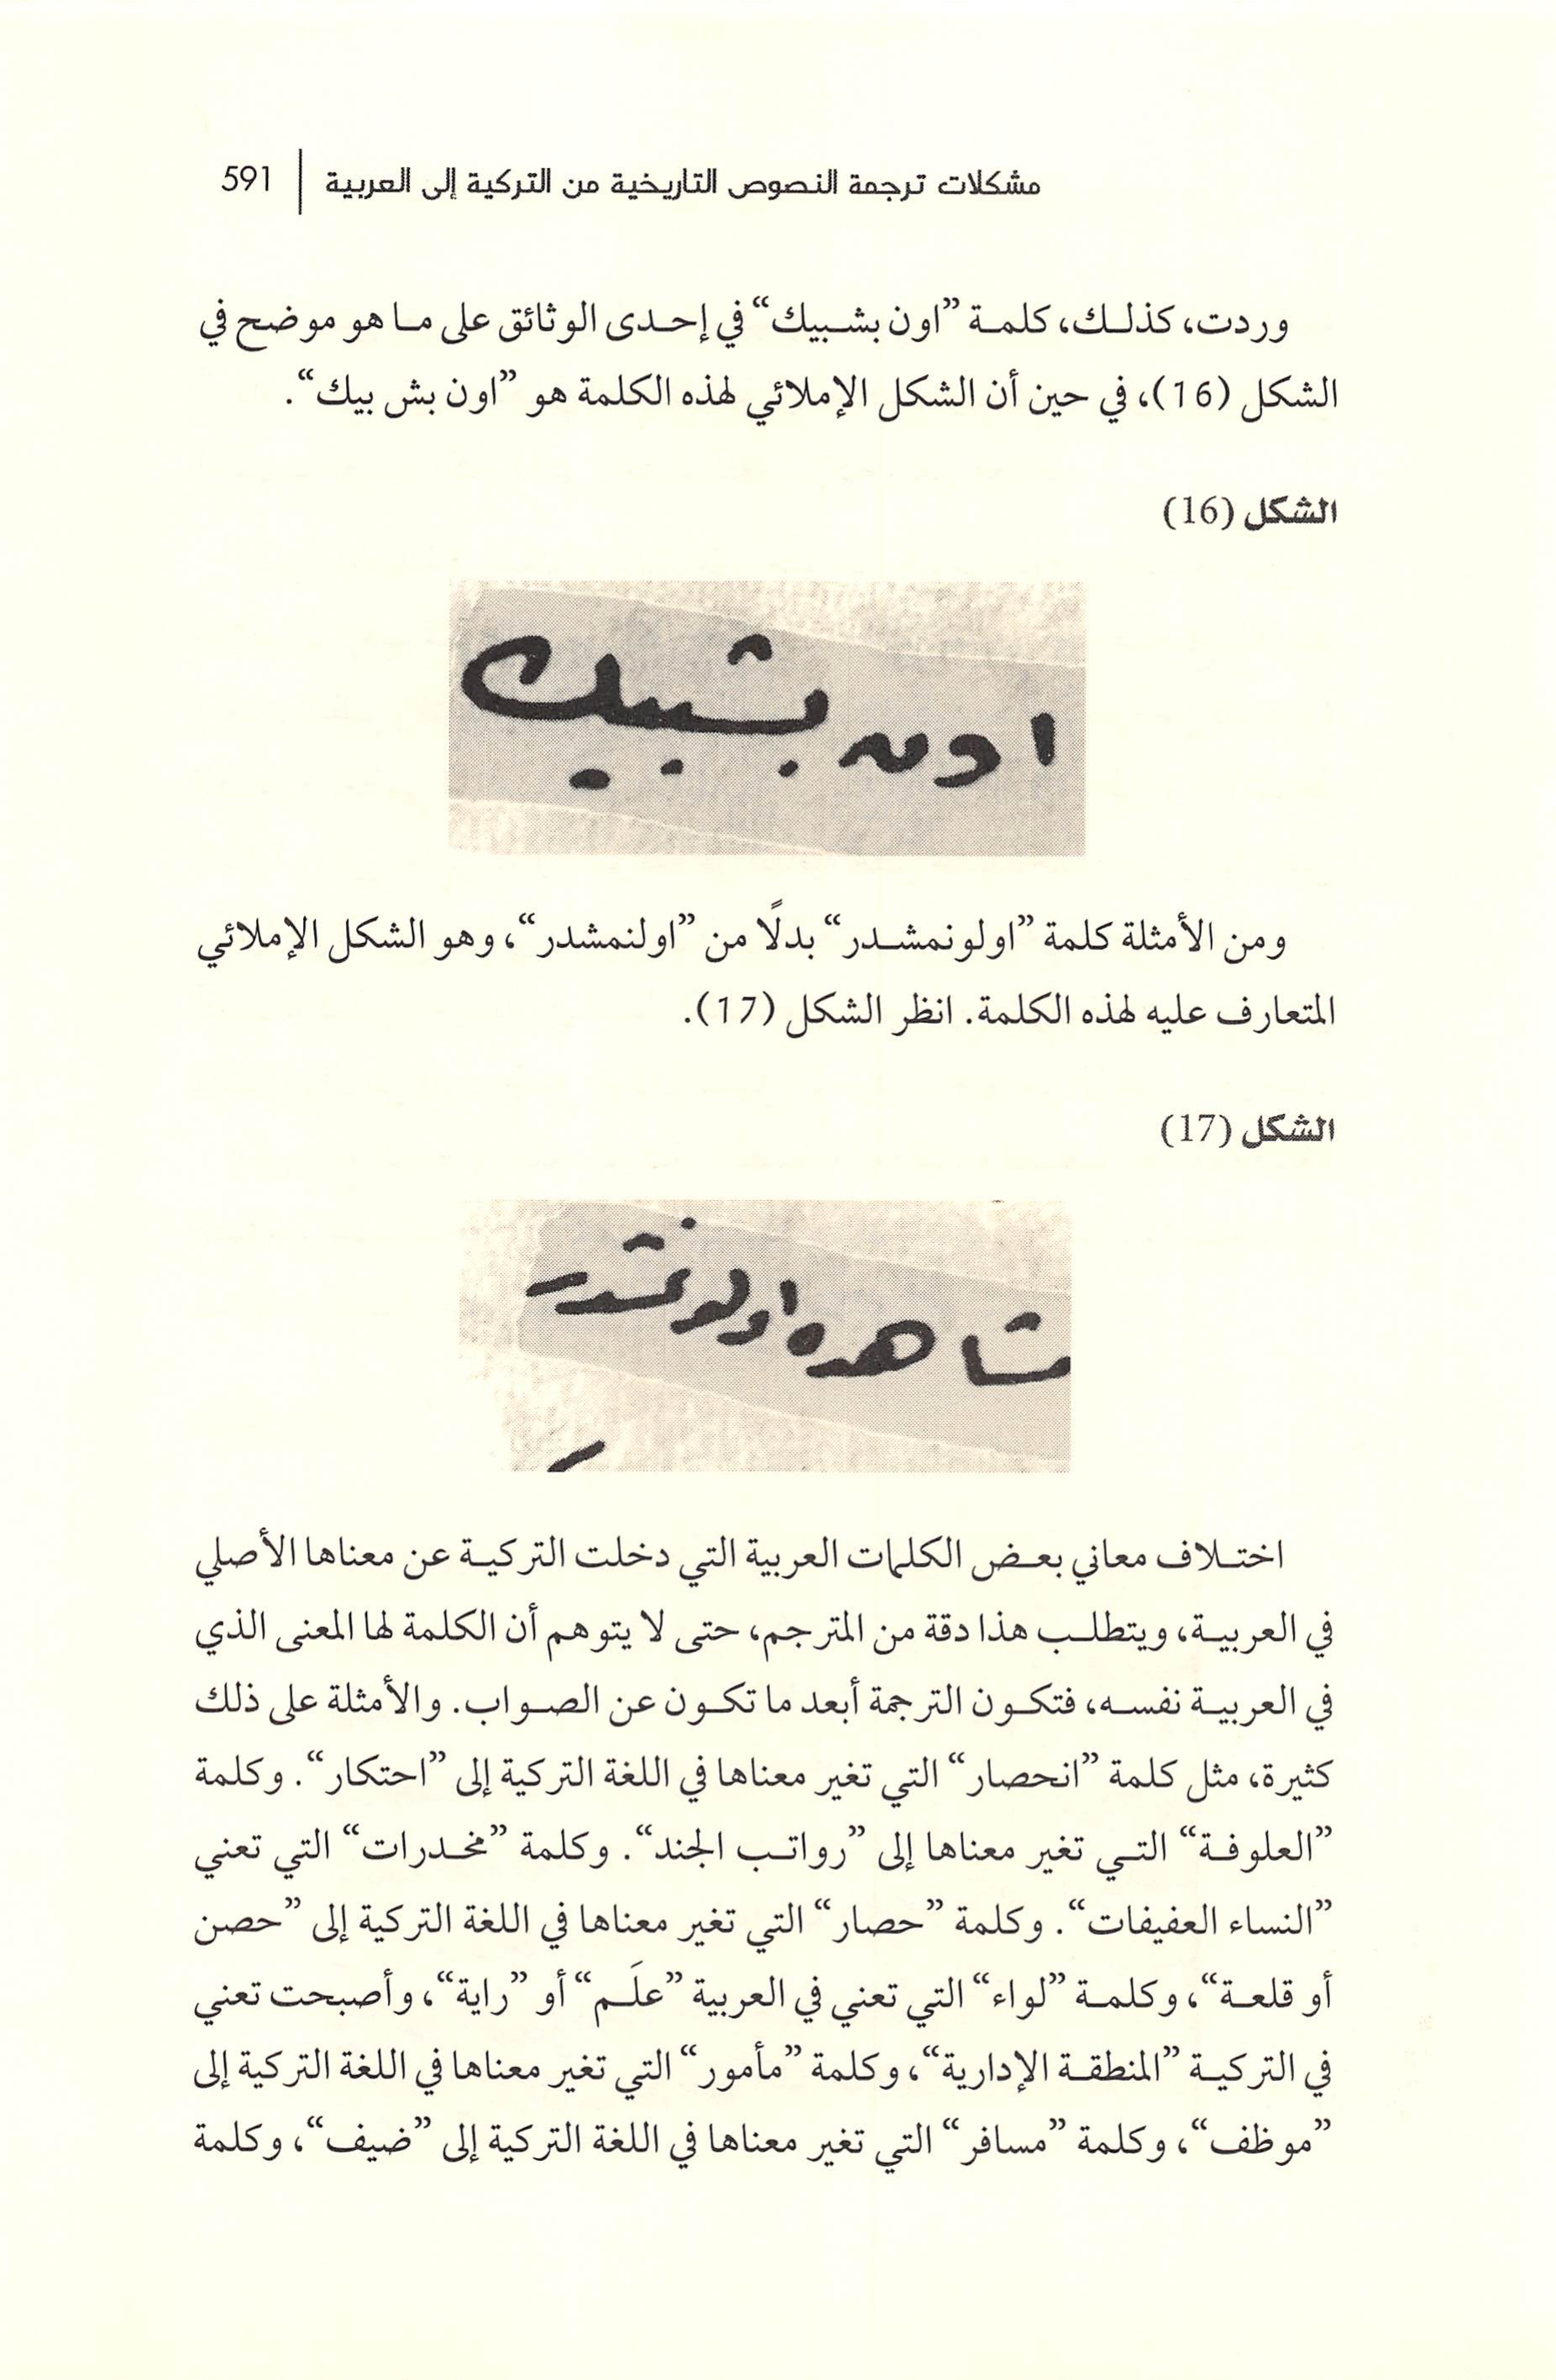 مشكلات ترجمة النصوص التاريخية من التركية إلى العربية | 591
وردت، كذلك، كلمة ”اون بشبيك“ في إحدى الوثائق على ما هو موضح في
الشكل (16)، في حين أن الشكل الإملائي لهذه الكلمة هو ”اون بش بيك“.
الشكل (16)
اون بشبيك
ومن الأمثلة كلمة ”اولونمشدر“ بدلًا من ”اولنمشدر“، وهو الشكل الإملائي
المتعارف عليه لهذه الكلمة. انظر الشكل (17).
الشكل (17)
مشاهده اولونمشدر
اختلاف معاني بعض الكلمات العربية التي دخلت التركية عن معناها الأصلي
في العربية، ويتطلب هذا دقة من المترجم، حتى لا يتوهم أن الكلمة لها المعنى الذي
في العربية نفسه، فتكون الترجمة أبعد ما تكون عن الصواب. والأمثلة على ذلك
كثيرة، مثل كلمة ”انحصار“ التي تغير معناها في اللغة التركية إلى ”احتكار“. وكلمة
”العلوفة“ التي تغير معناها إلى ”رواتب الجند“. وكلمة ”مخدرات“ التي تعني
”النساء العفيفات“. وكلمة ”حصار“ التي تغير معناها في اللغة التركية إلى ”حصن
أو قلعة“، وكلمة ”لواء“ التي تعني في العربية ”علَم“ أو ”راية“، وأصبحت تعني
في التركية ”المنطقة الإدارية“، وكلمة ”مأمور“ التي تغير معناها في اللغة التركية إلى
”موظف“، وكلمة ”مسافر“ التي تغير معناها في اللغة التركية إلى ”ضيف“، وكلمة